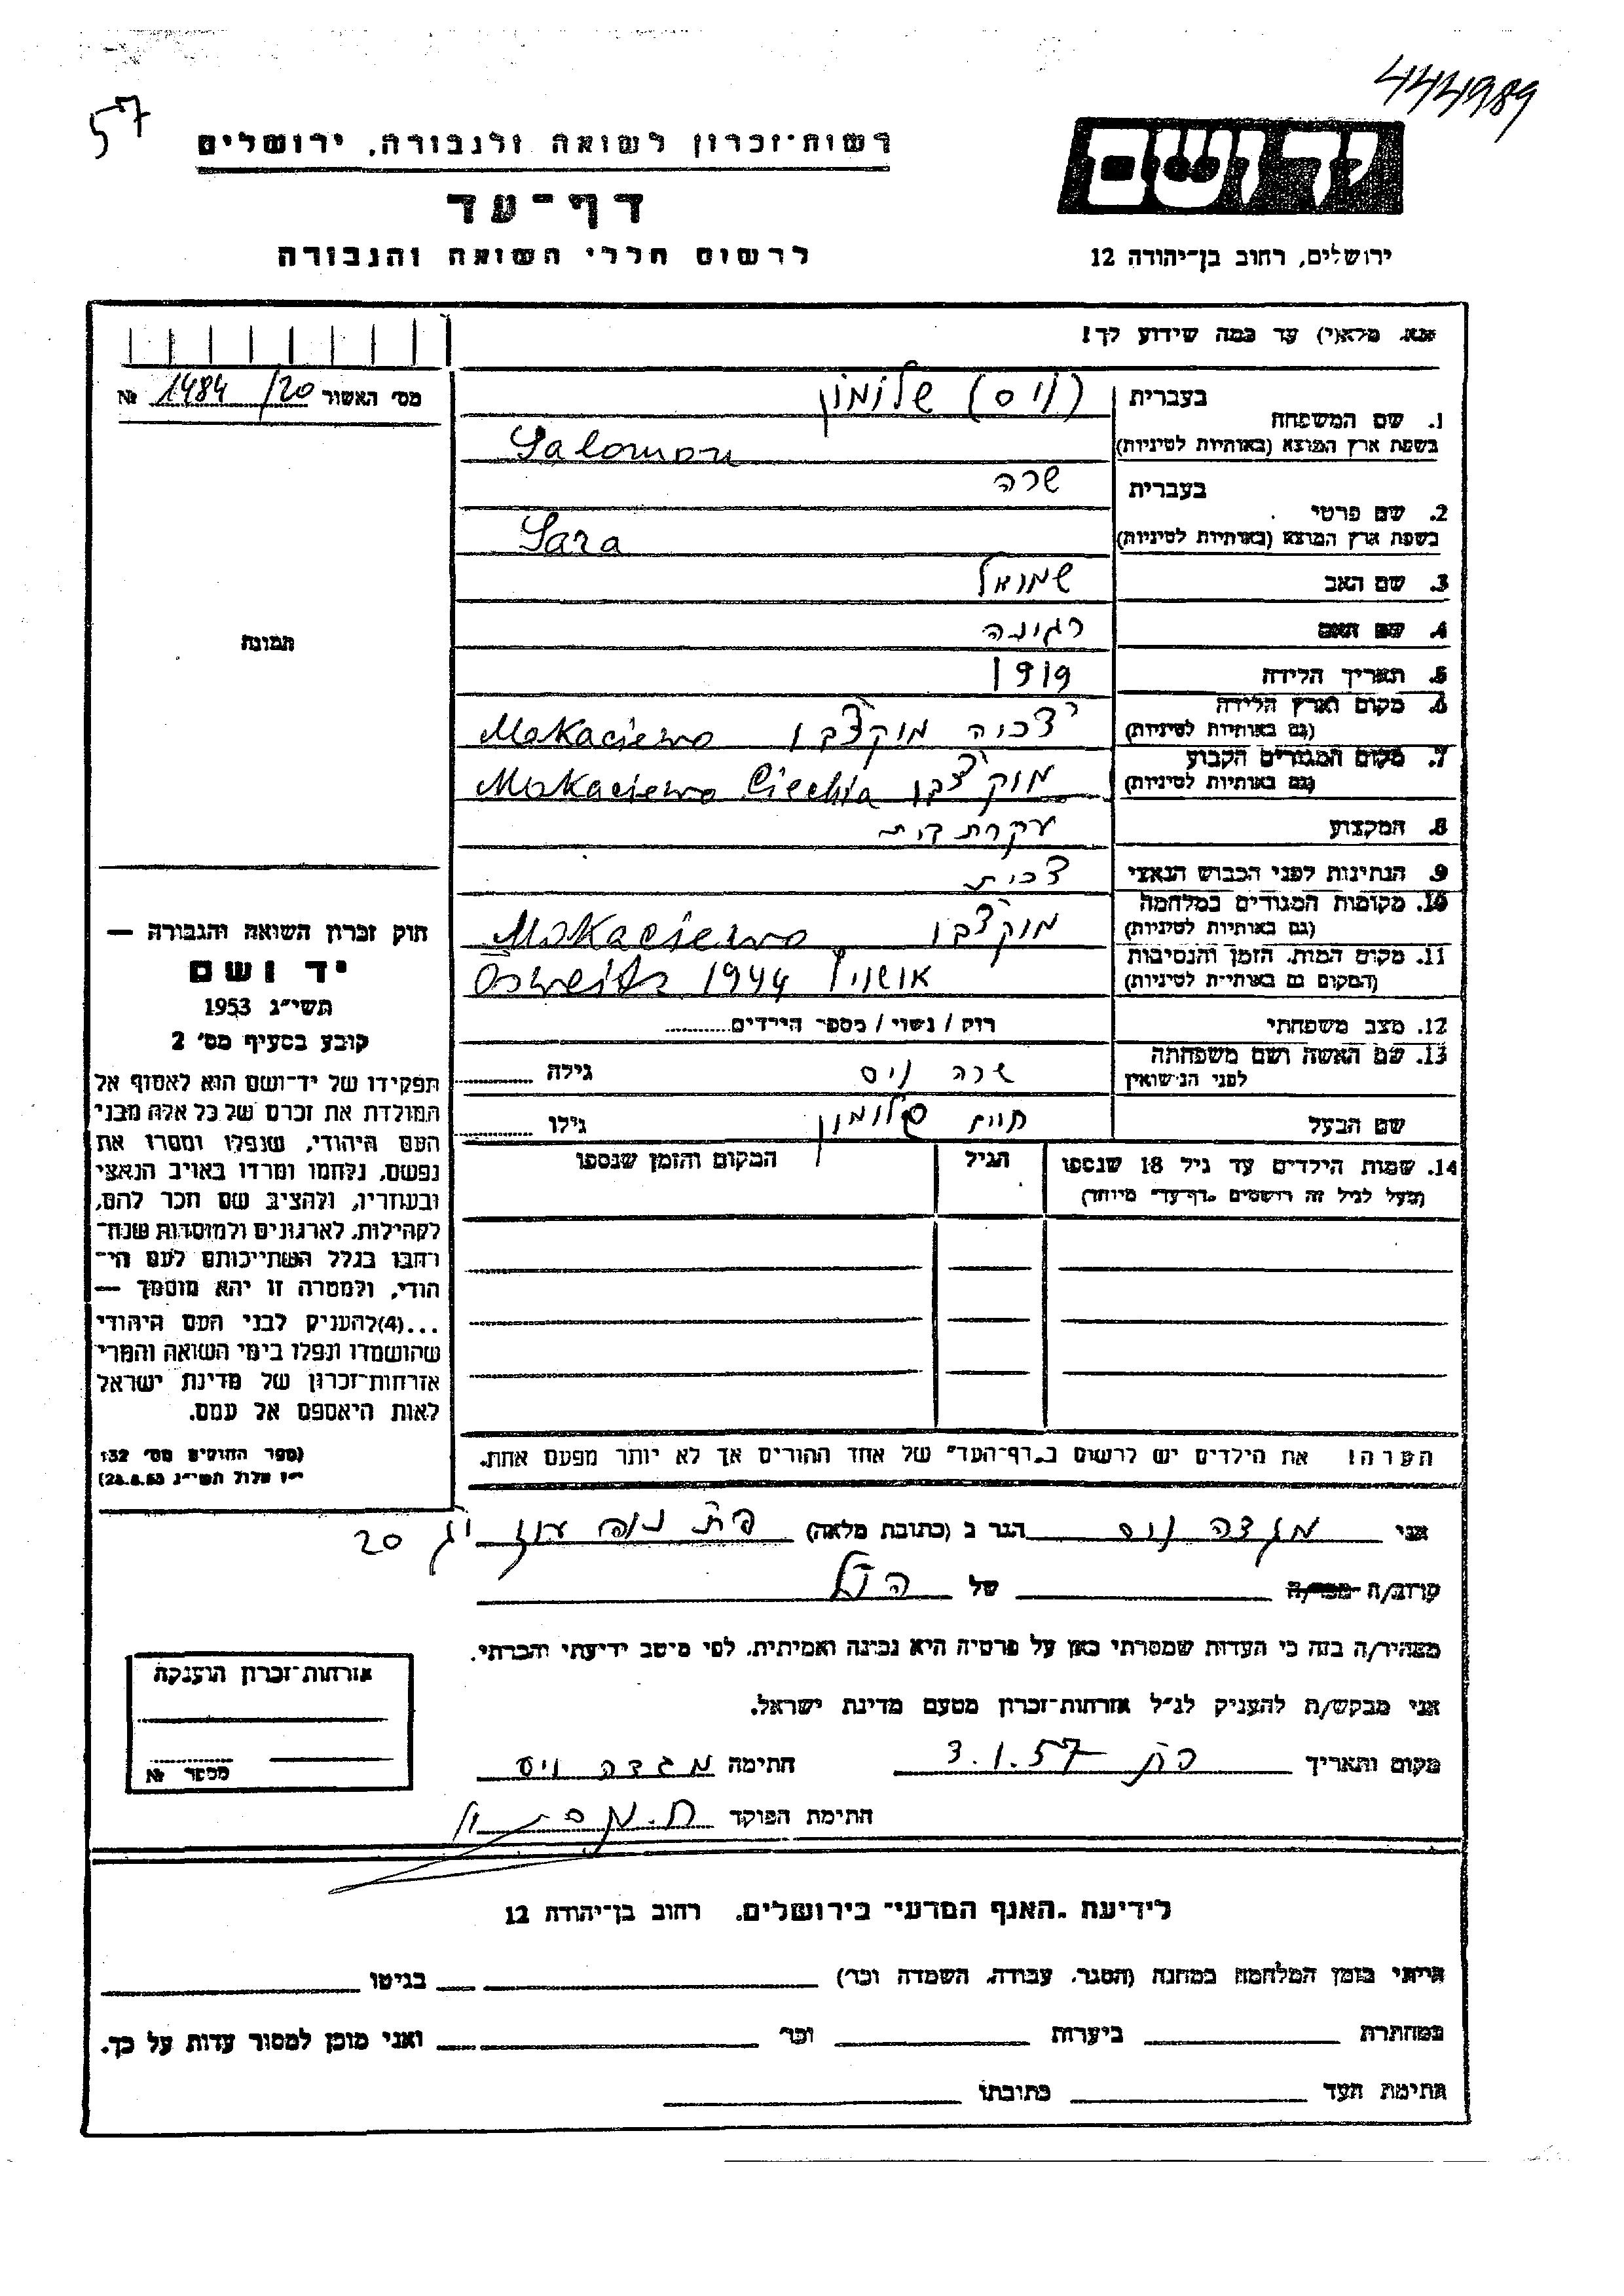 444989
57
רשות-זכרון לשואה ולגבורה, ירושלים
דף-עד
לרשום חללי השואה והגבורה
יד ושם
ירושלים, רחוב בן-יהודה 12
נא. מלא(י) עד כמה שידוע לך!
מס' האשור 1484/20 №
תמונה
1. שם המשפחה
בעברית (ויס) שלומון
בשפת ארץ המוצא (באותיות לטיניות) Salomon
2. שם פרטי
בעברית שרה
בשפת ארץ המוצא (באותיות לטיניות) Sara
3. שם האב שמואל
4. שם האם רגינה
5. תאריך הלידה 1919
6. מקום וארץ הלידה
(גם באותיות לטיניות) צ'כיה מוקצ'בו Mokaciewo
7. מקום המגורים הקבוע
(גם באותיות לטיניות) מוקצ'בו Mokaciewo Ciechia
8. המקצוע עקרת בית
9. הנתינות לפני הכבוש הנאצי צ'כית
10. מקומות המגורים במלחמה
(גם באותיות לטיניות) מוקצ'בו Mokaciewo
11. מקום המות, הזמן והנסיבות
(המקום גם באותיות לטיניות) 1944
12. מצב משפחתי רוק / נשוי / מספר הילדים
13. שם האשה ושם משפחתה
לפני הנישואין שרה ויס גילה
שם הבעל שלומון גילו
14. שמות הילדים עד גיל 18 שנספו הגיל המקום והזמן שנספו
(מעל לגיל זה רושמים "דף-עד" מיוחד)
הערה! את הילדים יש לרשום ב"דף-העד" של אחד ההורים אך לא יותר מפעם אחת.
חוק זכרון השואה והגבורה —
יד ושם
תשי"ג 1953
קובע בסעיף מס' 2
תפקידו של יד-ושם הוא לאסוף אל
המולדת את זכרם של כל אלה מבני
העם היהודי, שנפלו ומסרו את
נפשם, נלחמו ומרדו באויב הנאצי
ובעוזריו, ולהציב שם וזכר להם,
לקהילות, לארגונים ולמוסדות שנח-
רבו בגלל השתייכותם לעם הי-
הודי, ולמטרה זו יהא מוסמך —
...(4)להעניק לבני העם היהודי
שהושמדו ונפלו בימי השואה והמרי
אזרחות-זכרון של מדינת ישראל
לאות היאספם אל עמם.
(ספר החוקים מס' 132
י"ז אלול תשי"ג 28.8.53)
אני מגדה ויס הגר ב (כתובת מלאה) 20
קרוב/ה מכר/ה של הנ"ל
מצהיר/ה בזה כי העדות שמסרתי כאן על פרטיה היא נכונה ואמיתית, לפי מיטב ידיעתי והכרתי.
אני מבקש/ת להעניק לנ"ל אזרחות-זכרון מטעם מדינת ישראל.
מקום ותאריך 3.1.57 חתימה מגדה ויס
חתימת הפוקד
אזרחות-זכרון הוענקה
מספר №
לידיעת "האגף המדעי" בירושלים, רחוב בן-יהודה 12
הייתי בזמן המלחמה במחנה (הסגר, עבודה, השמדה וכו') בגיטו
במחתרת ביערות וכו' ואני מוכן למסור עדות על כך.
חתימת העד כתובתו